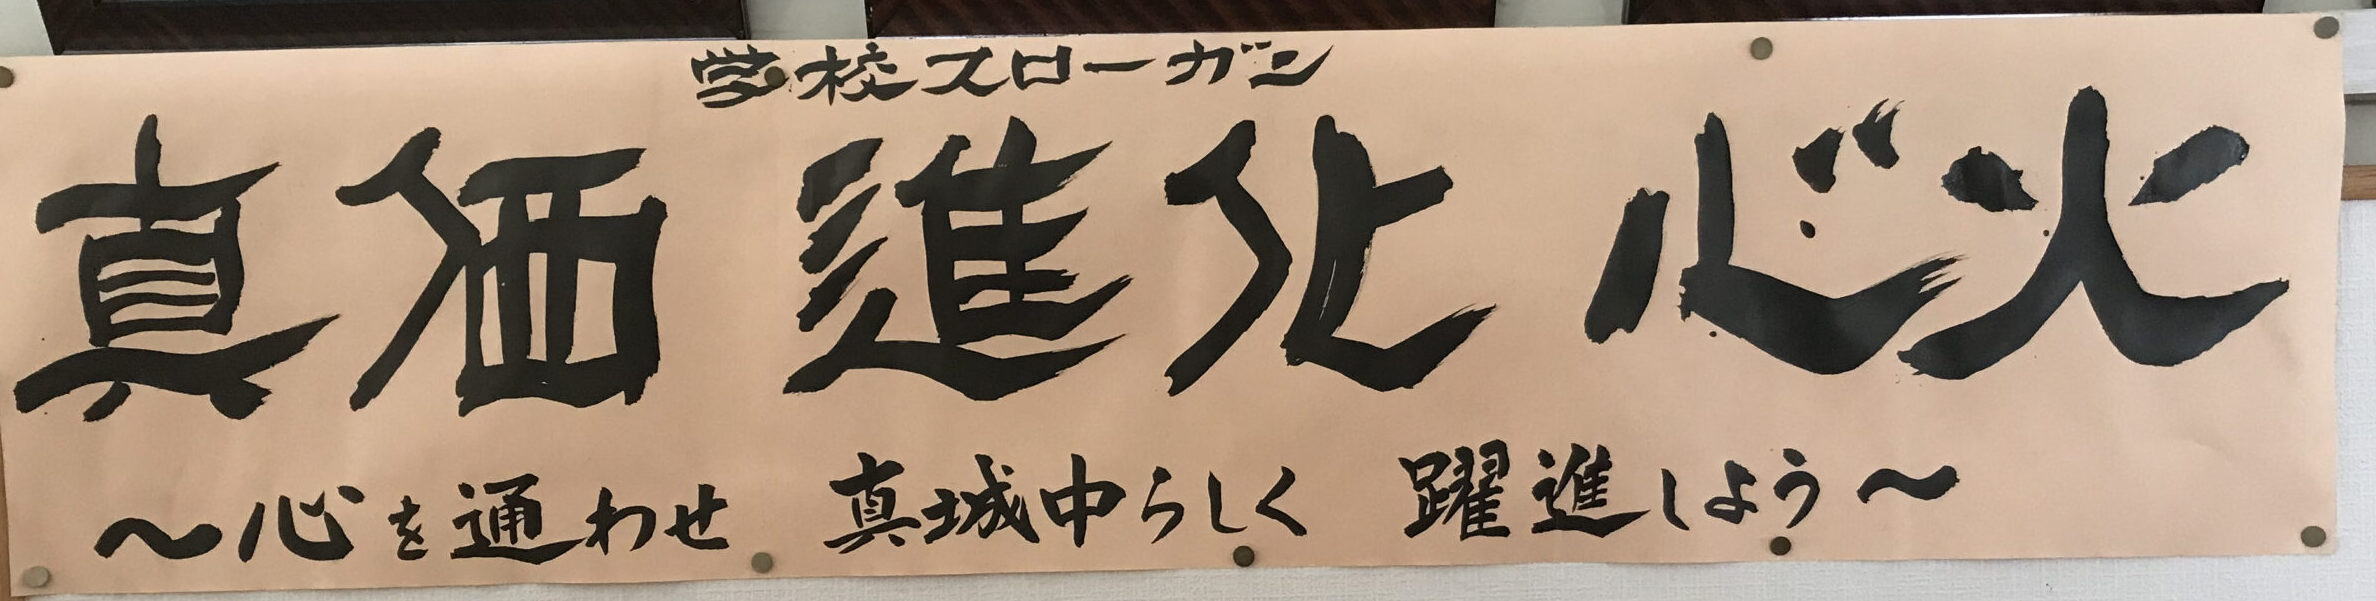 学校スローガン
真価 進化 心火
～心を通わせ 真城中らしく 躍進しよう～